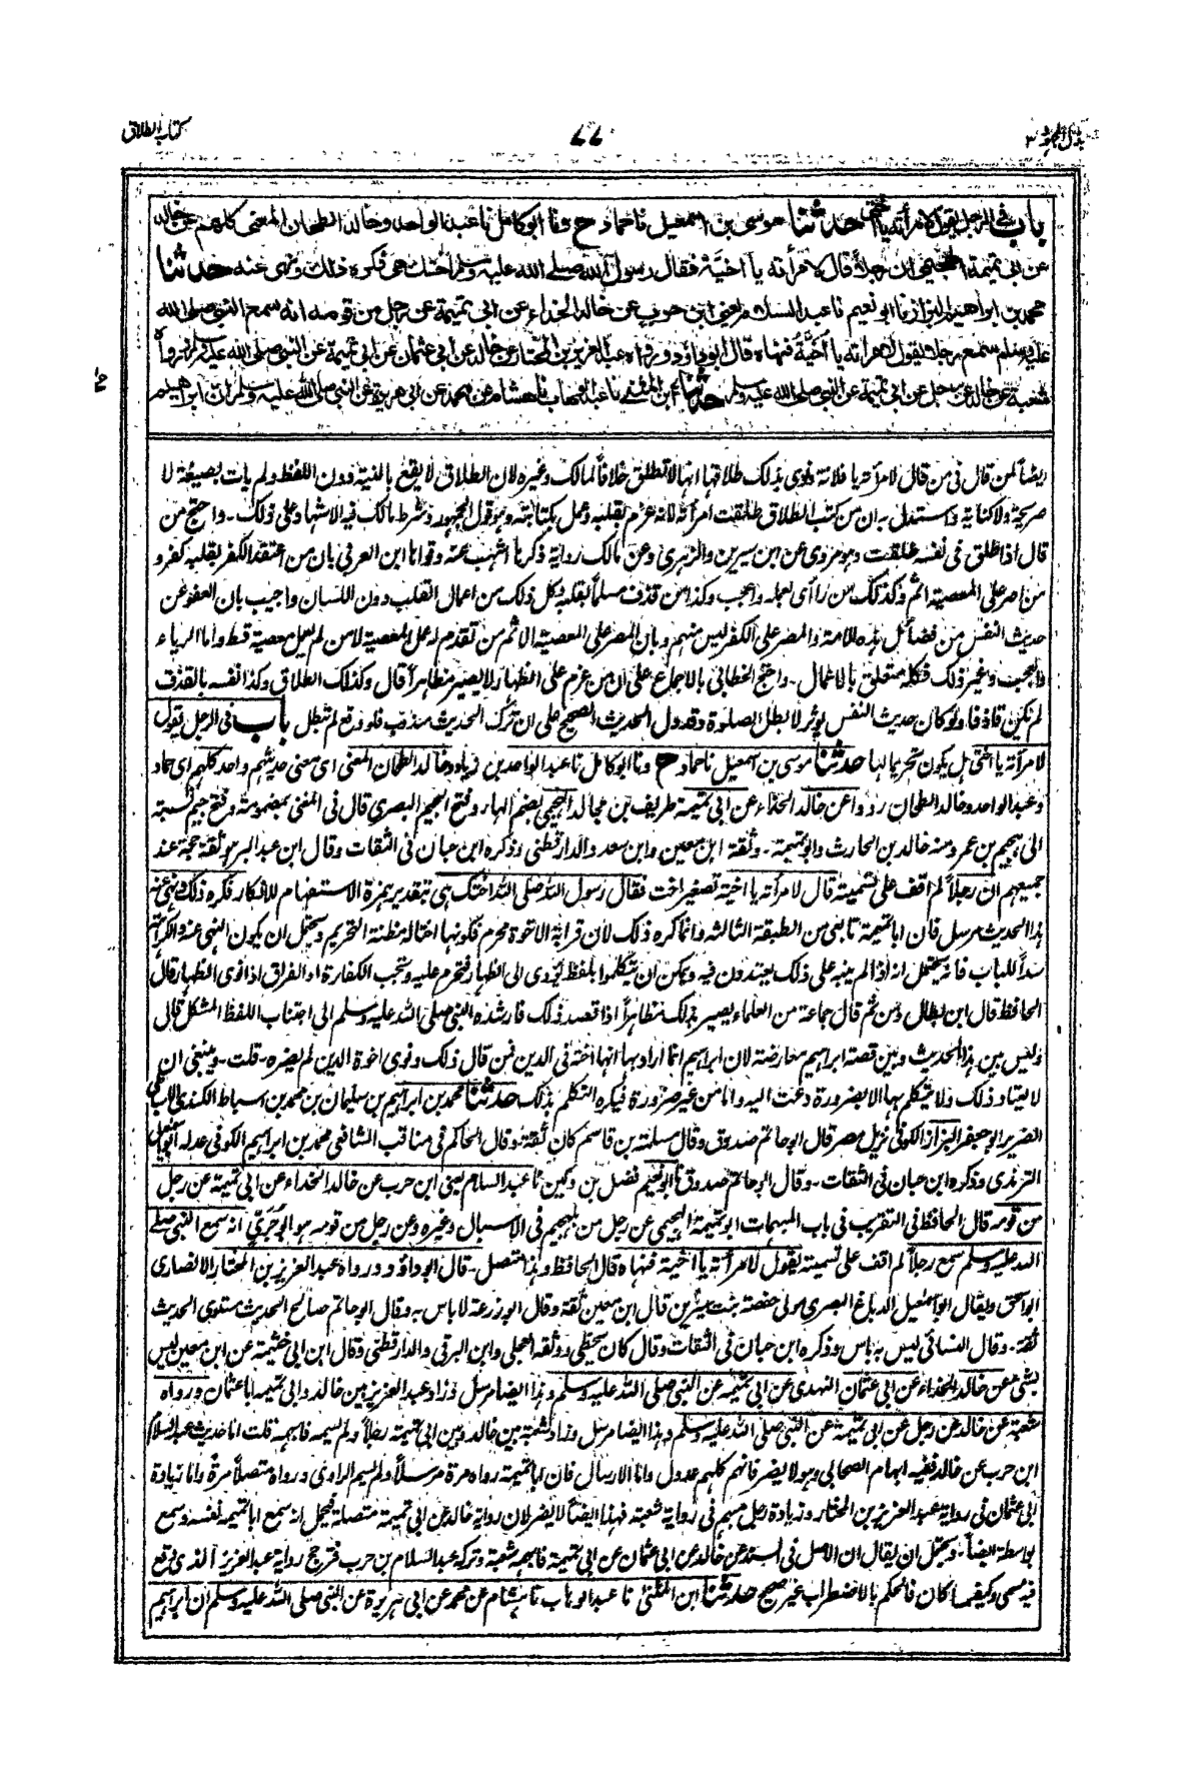 بذل المجهود ٣
٧٧
كتاب الطلاق
باب في الرجل يقول لامرأته يا أختي حدثنا موسى بن اسمعيل نا حماد ح ونا ابو كامل نا عبد الواحد وخالد الطحان المعنى كلهم عن خالد
عن ابي تميمة الهجيمي ان رجلا قال لامرأته يا أخيّة فقال رسول الله صلى الله عليه وسلم أختك هي فكره ذلك ونهى عنه حدثنا
محمد بن ابراهيم البزاز نا ابو نعيم نا عبد السلام يعني ابن حرب عن خالد الحذاء عن ابي تميمة عن رجل من قومه انه سمع النبي صلى الله
عليه وسلم سمع رجلا يقول لامرأته يا أخيّة فنهاه قال ابو داؤد ورواه عبد العزيز بن المختار عن خالد عن ابي عثمان عن ابي تميمة عن النبي صلى الله عليه وسلم ورواه
شعبة عن خالد عن رجل عن ابي تميمة عن النبي صلى الله عليه وسلم حدثنا ابن المثنى نا عبد الوهاب نا هشام عن محمد عن ابي هريرة عن النبي صلى الله عليه وسلم ان ابراهيم
ايضا لمن قال في من قال لامرأته يا فلانة ونوى بذلك طلاقها انها لا تطلق خلافا لمالك وغيره لان الطلاق لا يقع بالنية دون اللفظ ولم يات بصيغة لا
صريحة ولا كناية واستدل به ان من كتب الطلاق طلقت امرأته لانه عزم بقلبه وعمل بكتابته وهو قول الجمهور وشرط مالك فيه الاشهاد على ذلك ۔ واحتج من
قال اذا طلق في نفسه طلقت وهو مروي عن ابن سيرين والزهري وعن مالك رواية ذكرها اشهب عنه وقواها ابن العربي بان من اعتقد الكفر بقلبه كفر و
من اصر على المعصية اثم وكذلك من راأى بعمله واعجب وكذا من قذف مسلما بقلبه وكل ذلك من اعمال القلب دون اللسان واجيب بان العفو عن
حديث النفس من فضائل هذه الامة والمصر على الكفر ليس منهم وبان المصر على المعصية الاثم من تقدم له عمل المعصية لا من لم يعمل معصية قط واما الرياء
والعجب وغير ذلك فكله متعلق بالاعمال ۔ واحتج الخطابي بالاجماع على ان من عزم على الظهار لا يصير مظاهرا قال وكذلك الطلاق وكذا لو حدث نفسه بالقذف
لم يكن قاذفا ولو كان حديث النفس يوثر لابطل الصلوة وقد دل الحديث الصحيح على ان ترك الحديث مندوب فلو وقع لم تبطل باب في الرجل يقول
لامرأته يا اختي هل يكون تحريما لها حدثنا موسى بن اسمعيل نا حماد ح ونا ابو كامل نا عبد الواحد بن زياد وخالد الطحان المعنى اي معنى حديثهم واحد كلهم اي حماد
وعبد الواحد وخالد الطحان رووا عن خالد الحذاء عن ابي تميمة طريف بن مجالد الهجيمي بضم الهاء وفتح الجيم البصري قال في المغني بمضمومة وفتح جيم نسبة
الى هجيم بن عمرو منه خالد بن الحارث وابو تميمة ۔ وثقه ابن معين وابن سعد والدارقطني وذكره ابن حبان في الثقات وقال ابن عبد البر هو ثقة حجة عند
جميعهم ان رجلا لم اقف على تسميته قال لامرأته يا اخية تصغير اخت فقال رسول الله صلى الله اختك هي بتقدير همزة الاستفهام للانكار فكره ذلك ونهى عنه
هذا الحديث مرسل فان ابا تميمة تابعي من الطبقة الثالثة وانما كره ذلك لان قرابة الاخوة محرم فكونها اختا له مظنة التحريم ويحتمل ان يكون النهي عنه والكراهة
سدا للباب فانه يحتمل انه اذا لم ينبه على ذلك يعتدون فيه ويمكن ان يتكلموا بلفظ يؤدي الى الظهار فتحرم عليه ويجب الكفارة او الفراق اذا نوى الظهار قال
الحافظ قال ابن بطال ومن ثم قال جماعة من العلماء يصير بذلك مظاهرا اذا قصد ذلك فارشده النبي صلى الله عليه وسلم الى اجتناب اللفظ المشكل قال
وليس بين هذا الحديث وبين قصة ابراهيم معارضة لان ابراهيم انما اراد بها انها اخته في الدين فمن قال ذلك ونوى اخوة الدين لم يضره ۔ قلت ۔ وينبغي ان
لا يعتاد ذلك ولا يتكلم بها الا بضرورة دعت اليه واما من غير ضرورة فيكره التكلم بذلك حدثنا محمد بن ابراهيم بن سليمان بن محمد بن اسباط الكندي الاسباطي
الضرير ابو جعفر البزاز الكوفي نزيل مصر قال ابو حاتم صدوق وقال مسلمة بن قاسم كان ثقة وقال الحاكم في مناقب الشافعي محمد بن ابراهيم الكوفي عدله ابو اسمعيل
الترمذي وذكره ابن حبان في الثقات ۔ وقال ابو حاتم صدوق نا ابو نعيم فضل بن دكين نا عبد السلام يعني ابن حرب عن خالد الحذاء عن ابي تميمة عن رجل
من قومه قال الحافظ في التقريب في باب المبهمات ابو تميمة الهجيمي عن رجل من بلهجيم في الاسبال وغيره وعن رجل من قومه هو ابو جري انه سمع النبي صلى
الله عليه وسلم سمع رجلا لم اقف على تسميته يقول لامرأته يا اخية فنهاه قال الحافظ وهذا متصل ۔ قال ابو داؤد ورواه عبد العزيز بن المختار الانصاري
ابو اسحق ويقال ابو اسمعيل الدباغ البصري مولى حفصة بنت سيرين قال ابن معين ثقة وقال ابو زرعة لا باس به وقال ابو حاتم صالح الحديث مستوى الحديث
ثقة ۔ وقال النسائي ليس به باس وذكره ابن حبان في الثقات وقال كان يخطئ ووثقه العجلي وابن البرقي والدارقطني وقال ابن ابي خثيمة عن ابن معين ليس
بشئ عن خالد الحذاء عن ابي عثمان النهدي عن ابي تميمة عن النبي صلى الله عليه وسلم وهذا ايضا مرسل وزاد عبد العزيز بين خالد وابي تميمة ابا عثمان ورواه
شعبة عن خالد عن رجل عن ابي تميمة عن النبي صلى الله عليه وسلم وهذا ايضا مرسل وزاد شعبة بين خالد وبين ابي تميمة رجلا ولم يسمه فابهمه قلت اما حديث عبد السلام
ابن حرب عن خالد ففيه ابهام الصحابي وهو لا يضر فانهم كلهم عدول واما الارسال فان ابا تميمة رواه مرة مرسلا ولم يسم الراوي ورواه متصلا مرة واما زيادة
ابي عثمان في رواية عبد العزيز بن المختار وزيادة رجل مبهم في رواية شعبة فهذا ايضا لا يضر لان رواية خالد عن ابي تميمة متصلة فيحمل انه سمع ابا تميمة نفسه وسمع
بواسطة ايضا ۔ ويحتمل ان يقال ان الاصل في السند عن خالد عن ابي عثمان عن ابي تميمة فابهمه شعبة وتركه عبد السلام بن حرب فترجح رواية عبد العزيز الذي وقع
فيه مسمى وكيفما كان فالحكم بالاضطراب غير صحيح حدثنا ابن المثنى نا عبد الوهاب نا هشام عن محمد عن ابي هريرة عن النبي صلى الله عليه وسلم ان ابراهيم